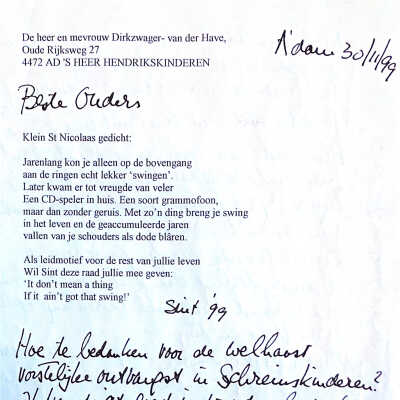 De heer en mevrouw Dirkzwager- van der Have,
Oude Rijksweg 27
4472 AD 'S HEER HENDRIKSKINDEREN
A'dam 30/11/99
Beste Ouders
Klein St Nicolaas gedicht:
Jarenlang kon je alleen op de bovengang
aan de ringen echt lekker 'swingen'.
Later kwam er tot vreugde van veler
Een CD-speler in huis. Een soort grammofoon,
maar dan zonder geruis. Met zo'n ding breng je swing
in het leven en de geaccumuleerde jaren
vallen van je schouders als dode blâren.
Als leidmotief voor de rest van jullie leven
Wil Sint deze raad jullie mee geven:
'It don't mean a thing
If it  ain't got that swing!'
Sint '99
Hoe te bedanken voor de welhaast
vorstelijke ontvangst in Schreinskinderen?